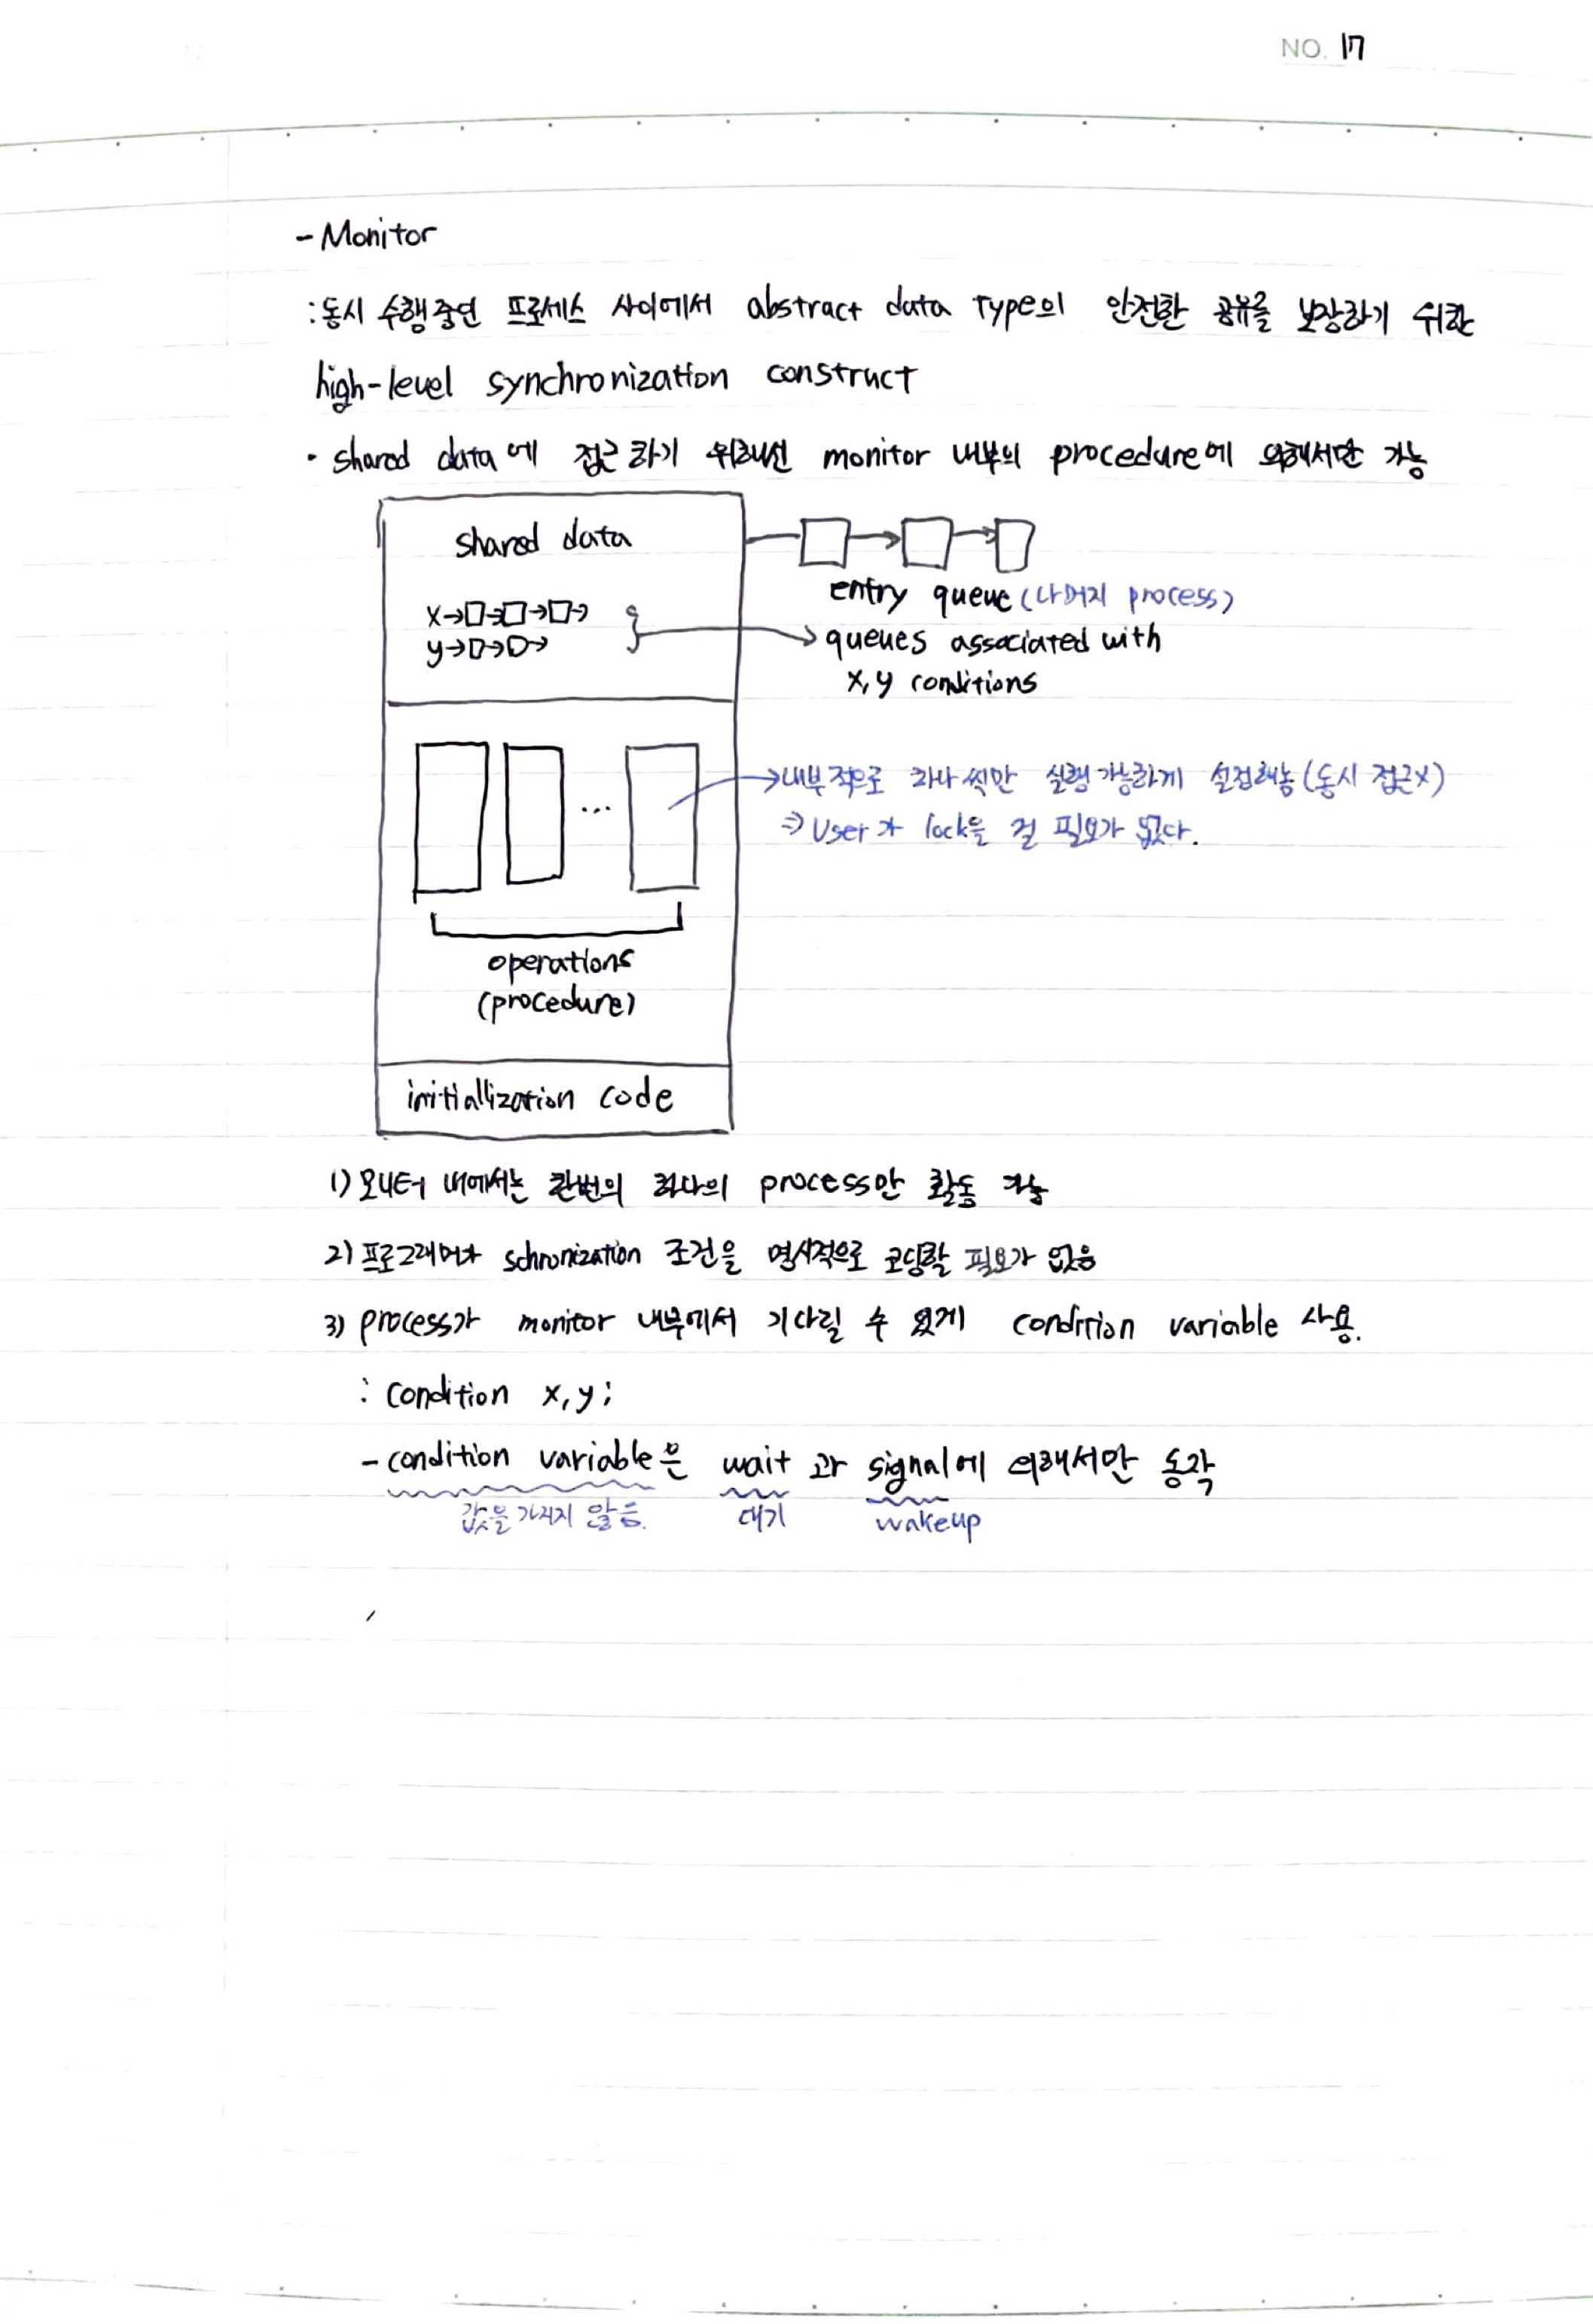 NO. 17
- Monitor
: 동시 수행중인 프로세스 사이에서 abstract data type의 안전한 공유를 보장하기 위한
high-level synchronization construct
• shared data에 접근하기 위해선 monitor 내부의 procedure에 의해서만 가능
shared data
entry queue (나머지 process)
x→□→□→□→
y→□→□→
queues associated with
x, y conditions
→내부적으로 하나씩만 실행가능하게 설정해놓 (동시 접근x)
...
⇒ User가 lock을 걸 필요가 없다.
operations
(procedure)
initiallization code
1) 모니터 내에서는 한번의 하나의 process만 활동 가능
2) 프로그래머가 schronization 조건을 명시적으로 코딩할 필요가 없음
3) process가 monitor 내부에서 기다릴 수 있게 condition variable 사용.
: condition x, y;
- condition variable은 wait 과 signal에 의해서만 동작
값을 가지지 않음. 대기 wakeup